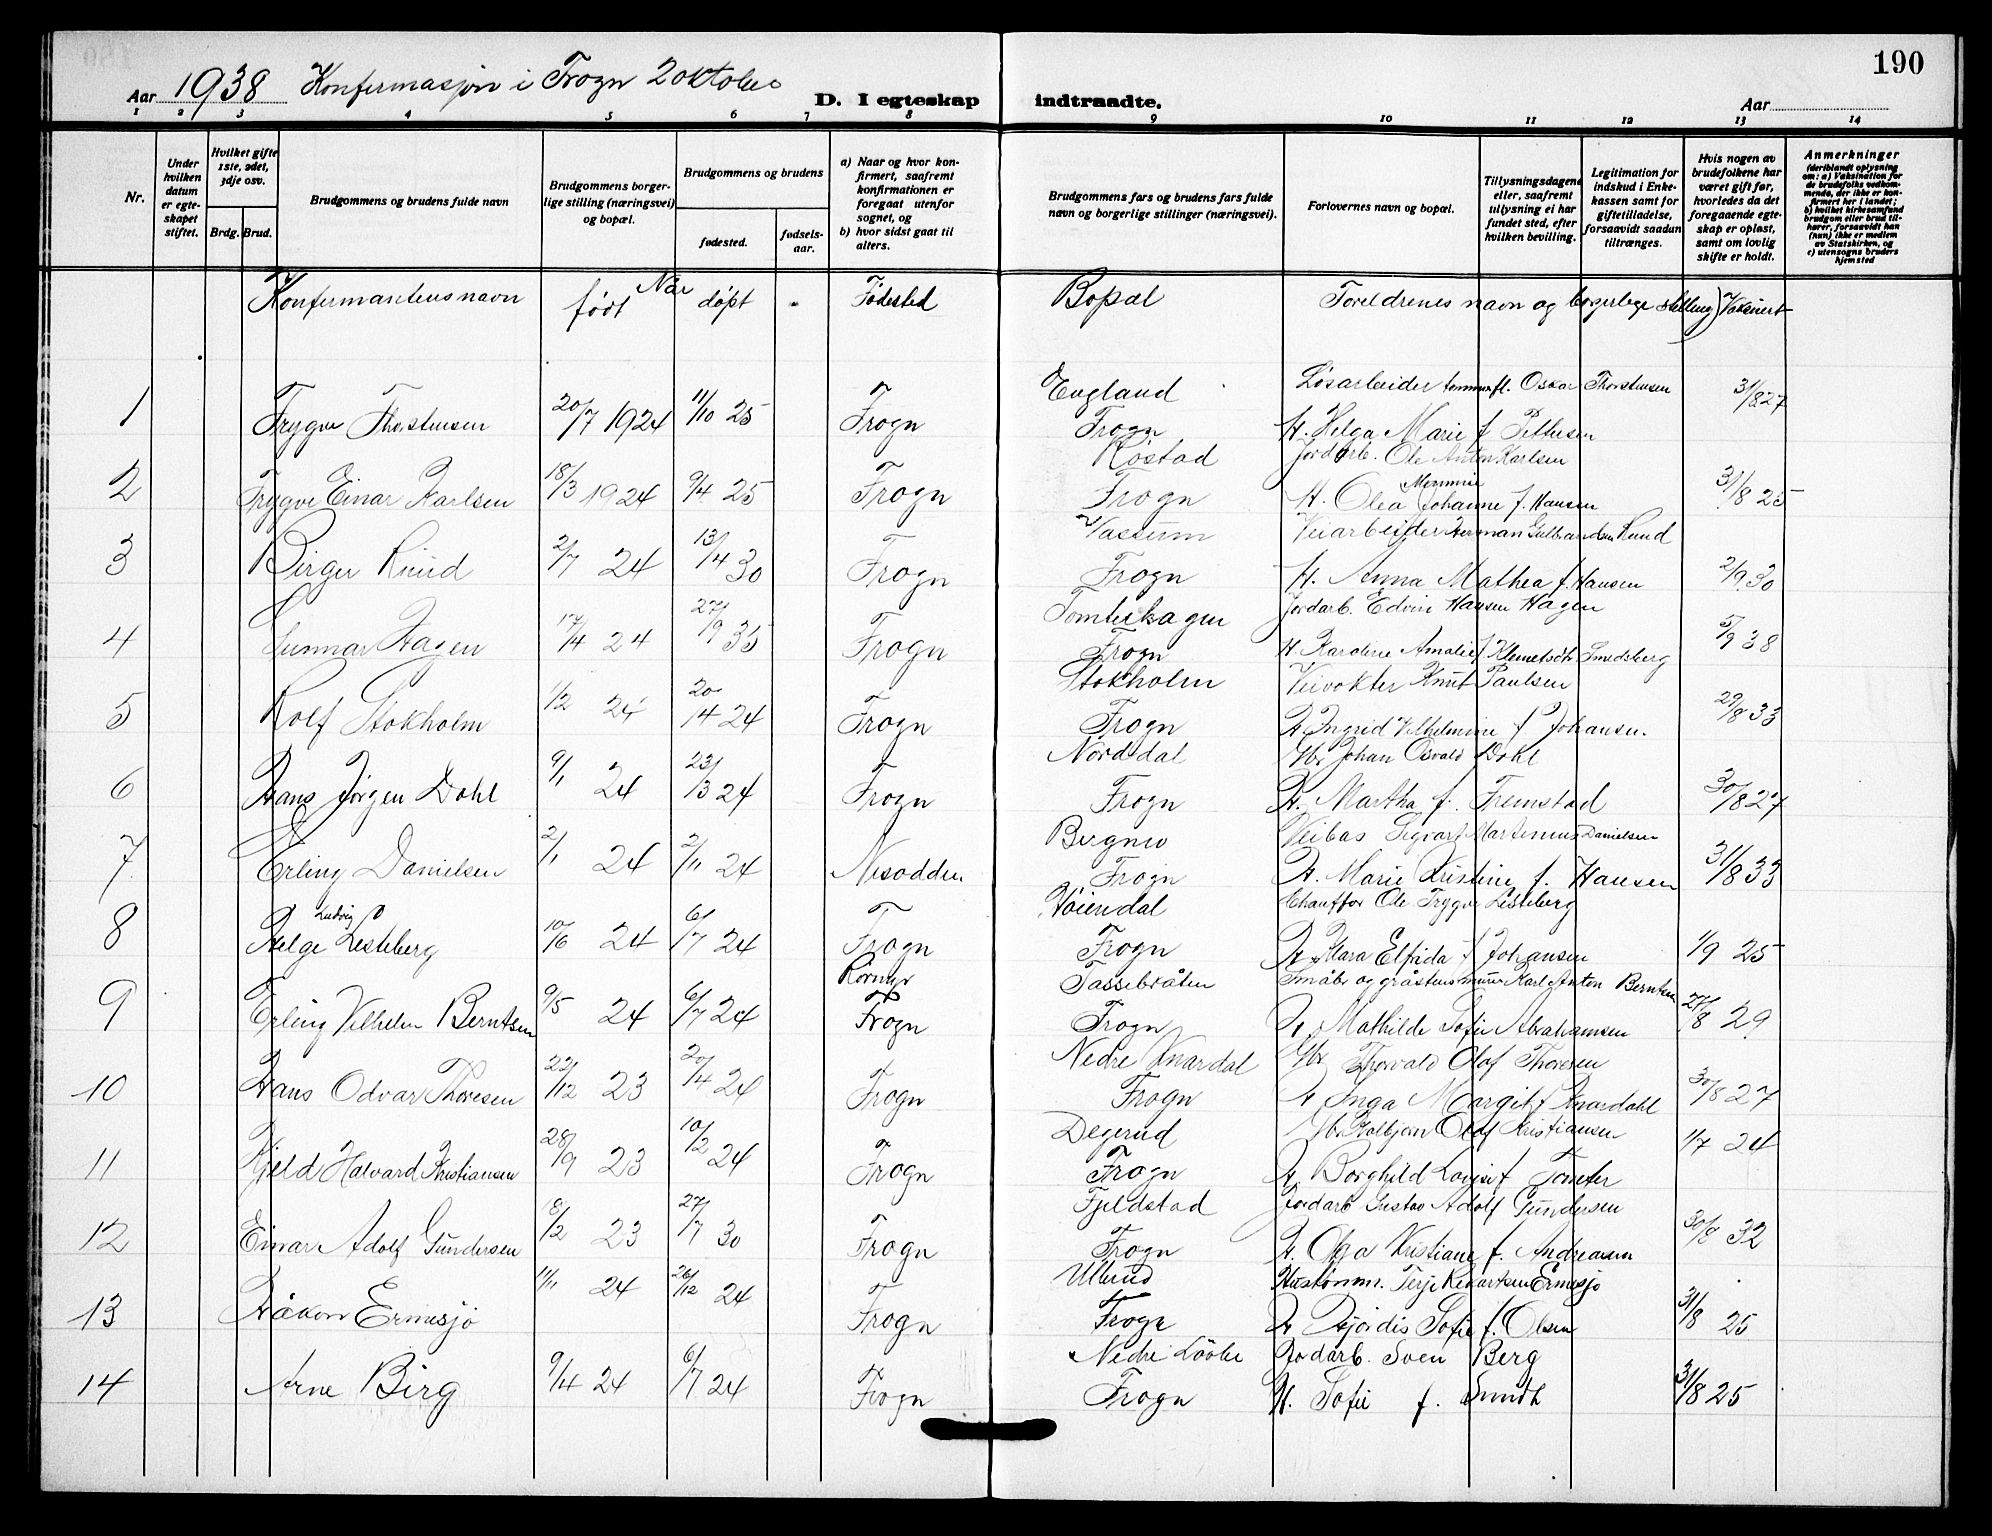 190
Aar 1938 Konfermasjon i Frogn 2 oktober
D. I egteskap indtraadte.
Aar
1 2 3 4 5 6 7 8 9 10 11 12 13 14
Nr.
Under hvilken datum er egteskapet stiftet.
Hvilket gifte 1ste, 2det, 3dje osv.
Brdg. Brud.
Brudgommens og brudens fulde navn
Brudgommens borgerlige stilling (næringsvei) og bopæl.
Brudgommens og brudens
fødested.
fødselsaar.
a) Naar og hvor konfirmert, saafremt konfirmationen er foregaat utenfor sognet, og
b) hvor sidst gaat til alters.
Brudgommens fars og brudens fars fulde navn og borgerlige stillinger (næringsvei).
Forlovernes navn og bopæl.
Tillysningsdagene eller, saafremt tillysning ei har fundet sted, efter hvilken bevilling.
Legitimation for indskud i Enkekassen samt for giftetilladelse, forsaavidt saadan tiltrænges.
Hvis nogen av brudefolkene har været gift før, hvorledes da det foregaaende egteskap er opløst, samt om lovlig skifte er holdt.
Anmerkninger (deriblandt oplysning om: a) Vaksination for de brudefolks vedkommende, der ikke er konfirmert her i landet; b) hvilket kirkesamfund brudgom eller brud tilhører, forsaavidt han (hun) ikke er medlem av Statskirken, og c) utensogns bruders hjemsted
Konfermantens navn født Når døpt Fødested Bopæl Foreldrenes navn og borgerlege stilling) Vaksinert
England Løsarbeider tømmerfl. Oskar Thorstensen 31/8 27
1 Trygve Thorstensen 20/7 1924 11/10 25 Frogn Frogn H. Helga Marie f. Pettersen
Røstad Jordarb. Ole Anton Karlsen
2 Trygve Einar Karlsen 18/3 1924 9/4 25 Frogn Frogn H. Olea Johanne f. Hansen 31/8 25
Vassum Veiarbeider Herman Gulbrandsen Ruud
3 Birger Ruud 2/7 24 13/4 30 Frogn Frogn H. Anna Mathea f. Hansen 2/9 30
Tomterhagen Jordarb. Edvin Hansen Hagen
4 Gunnar Hagen 17/4 24 27/9 35 Frogn Frogn H Karoline Amalie f Klemetsdtr Smedsberg 5/9 38
Stokholm Veivokter Knut Paulsen
5 Rolf Stokholm 1/2 24 20/14 24 Frogn Frogn H Ingrid Vilhelmine f Johansen. 29/8 33
Norddal Gbr Johan Osvald Dahl
6 Hans Jørgen Dahl 9/1 24 23/13 24 Frogn Frogn H. Martha f. Fremstad 30/8 27
Veibas Sigvart Martinius Danielsen
7 Erling Danielsen 2/1 24 2/11 24 Nesodden Frogn H. Marie Kristine f. Hansen 31/8 33
Chauffør Ole Trygve Lesteberg
8 Helge Ludvig Lesteberg 10/6 24 6/7 24 Frogn Frogn H Klara Elfrida f Johansen 1/9 25
Tassebråten Småbr og gråstensmurer Karl Anton Berntsen
9 Erling Vilhelm Berntsen 9/5 24 6/7 24 Frogn Frogn H Mathilde Sofie Abrahamsen 27/8 29
Nedre Knardal Gbr Thorvald Olaf Thoresen
10 Hans Odvar Thoresen 22/12 23 20/4 24 Frogn Frogn H Inga Margit f Knardahl 30/8 27
Degerud Gbr Kolbjørn Olaf Kristiansen
11 Kjeld Halvard Kristiansen 28/9 23 10/2 24 Frogn Frogn H Borghild Lovise f Tomter 1/7 24
Fjeldstad Jordarb Gustav Adolf Gundersen
12 Einar Adolf Gundersen 18/2 23 27/7 30 Frogn Frogn H. Olga Kristiane f. Andreasen 30/8 32
Ullrud Hustømm. Terje Rikartsen Ermesjø
13 Håkon Ermesjø 11/11 24 26/12 24 Frogn Frogn H Hjørdis Sofie f. Olsen 31/8 25
Nedre Jordarb. Sven Berg
14 Arne Berg 9/4 24 6/7 24 Frogn Frogn H. Sofie f. Sundt 31/8 25